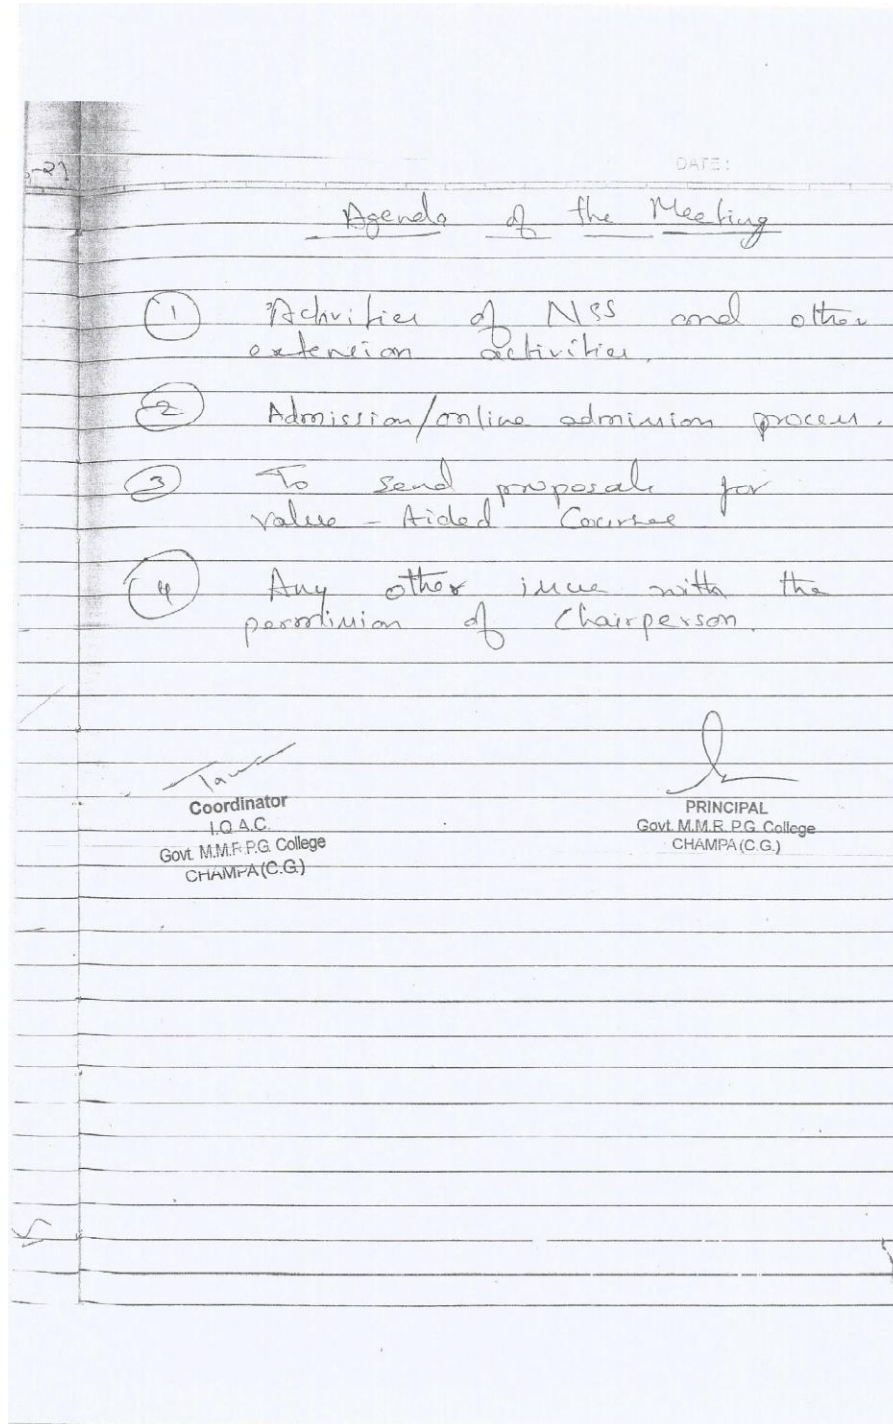 DATE:
-21
Agenda of the Meeting
1 Activities of NSS and other
extension activities.
2 Admission/online admission process.
3 To send proposals for
Value - Aided Courses
4 Any other issue with the
permission of Chairperson.
Coordinator
I.Q.A.C.
Govt. M.M.R. P.G. College
CHAMPA (C.G.)
PRINCIPAL
Govt. M.M.R. P.G. College
CHAMPA (C.G.)